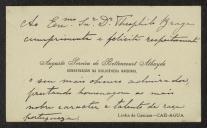 Ao Exmo Sr. Dr. Theophilo Braga
cumprimenta e felicita respeitosamte
Augusto Pereira de Bettencourt Athayde
CONSERVADOR DA BIBLIOTHECA NACIONAL
o seu mais humilde admirador,
prestando homenagem ao mais
nobre caracter e talento da raça
portugueza.
CAE-AGUA